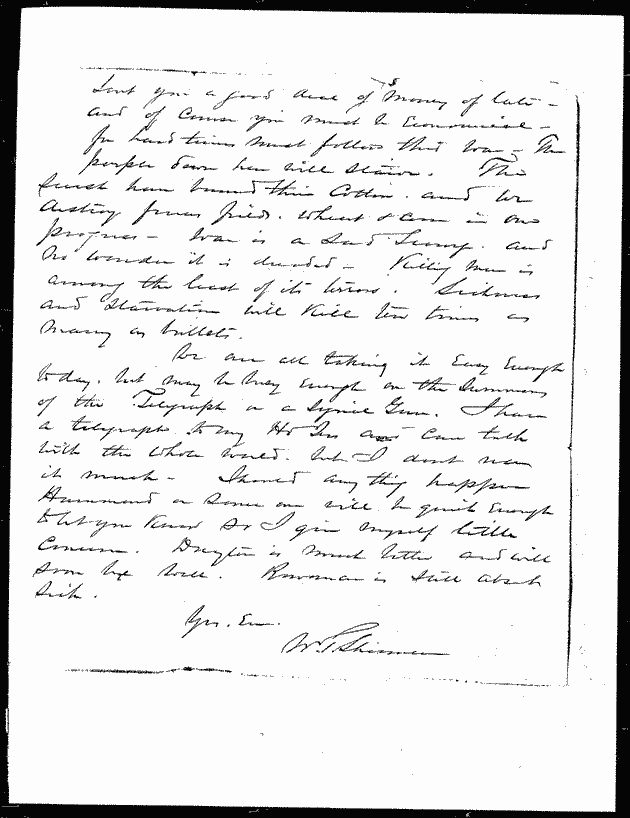 Sent you a good deal of Money of late -
and of Course you must be Economical -
for hard times must follow this War - The
people down here will starve. The
have burned their Cotton. and We
destroy fences fields. wheat & corn in our
progress - War is a Sad and
No wonder it is dreaded - Killing Men is
among the least of its terrors. Sickness
and Starvation will Kill ten times as
many as bullets.
We are all taking it Easy Enough
today. but may be busy Enough on the Summons
of the Telegraph or a Signal Gun. I have
a telegraph to my Hd Qrs and can talk
with the whole world. but I dont use
it much - Should any thing happen
Hammond or some one will be quick Enough
to let you Know so I give myself little
Concern. Dayton is much better and will
soon be well. Bowman is still absent
Sick.
Yrs. Ever
W T Sherman